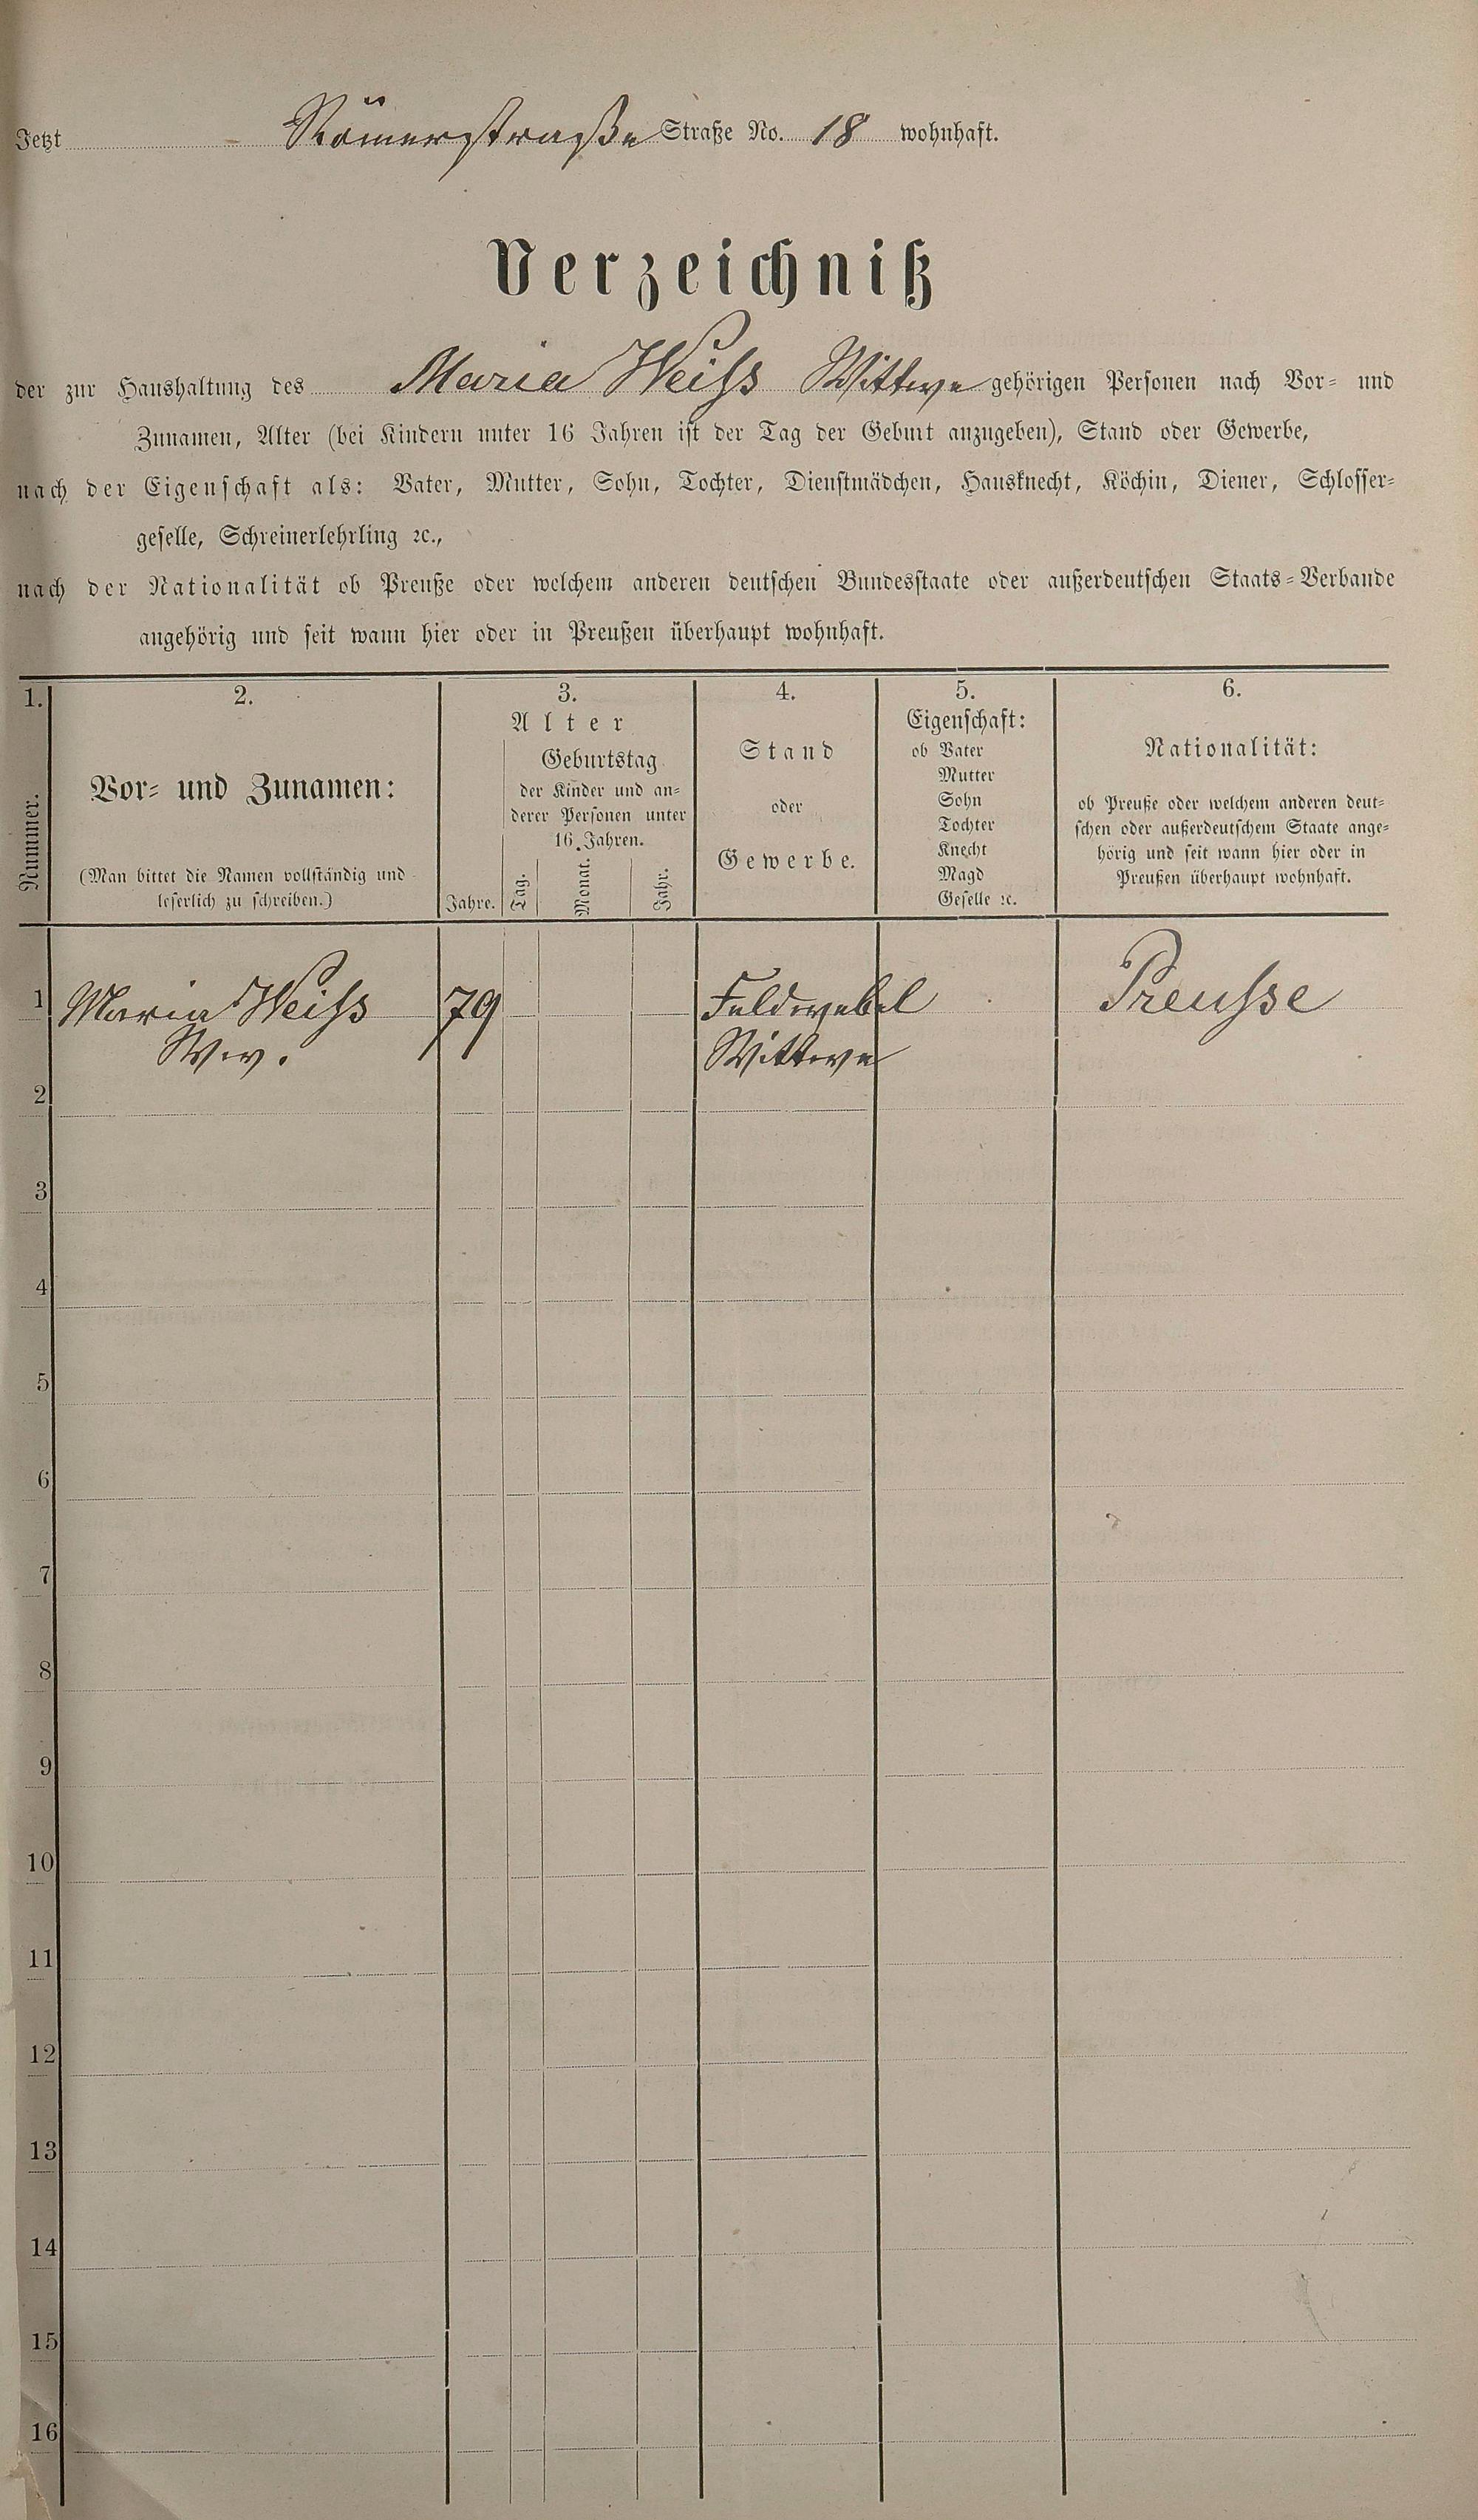 Jetzt Römerstraße Straße No. 18 wohnhaft.
Verzeichniß
der zur Haushaltung des Maria Weiß Wittwe gehörigen Personen nach Vor- und
Zunamen, Alter (bei Kindern unter 16 Jahren ist der Tag der Geburt anzugeben), Stand oder Gewerbe,
nach der Eigenschaft als: Vater, Mutter, Sohn, Tochter, Dienstmädchen, Hausknecht, Köchin, Diener, Schlosser-
geselle, Schreinerlehrling ꝛc.,
nach der Nationalität ob Preuße oder welchem anderen deutschen Bundesstaate oder außerdeutschen Staats-Verbande
angehörig und seit wann hier oder in Preußen überhaupt wohnhaft.
1.
Nummer.
2.
Vor- und Zunamen:
(Man bittet die Namen vollständig und
leserlich zu schreiben.)
3.
Alter
Jahre.
Geburtstag
der Kinder und an-
derer Personen unter
16 Jahren.
Tag.
Monat.
Jahr.
4.
Stand
oder
Gewerbe.
5.
Eigenschaft:
ob Vater
Mutter
Sohn
Tochter
Knecht
Magd
Geselle ꝛc.
6.
Nationalität:
ob Preuße oder welchem anderen deut-
schen oder außerdeutschem Staate ange-
hörig und seit wann hier oder in
Preußen überhaupt wohnhaft.
1 Maria Weiß 79 Feldwebel Preusse
Wwe. Wittwe
2
3
4
5
6
7
8
9
10
11
12
13
14
15
16